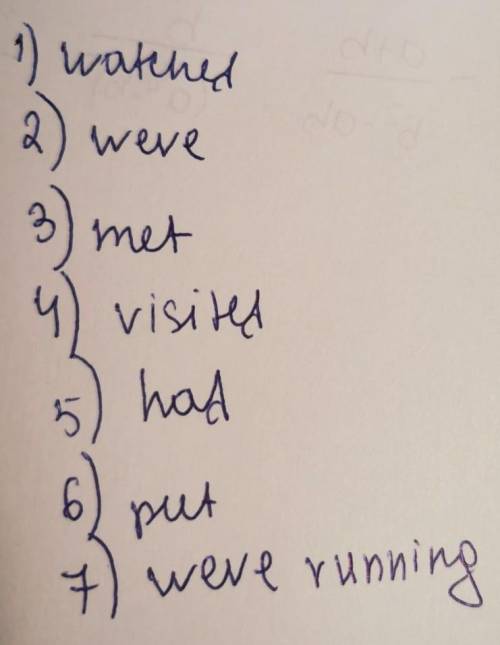 1) watched
2) were
3) met
4) visited
5) had
6) put
7) were running